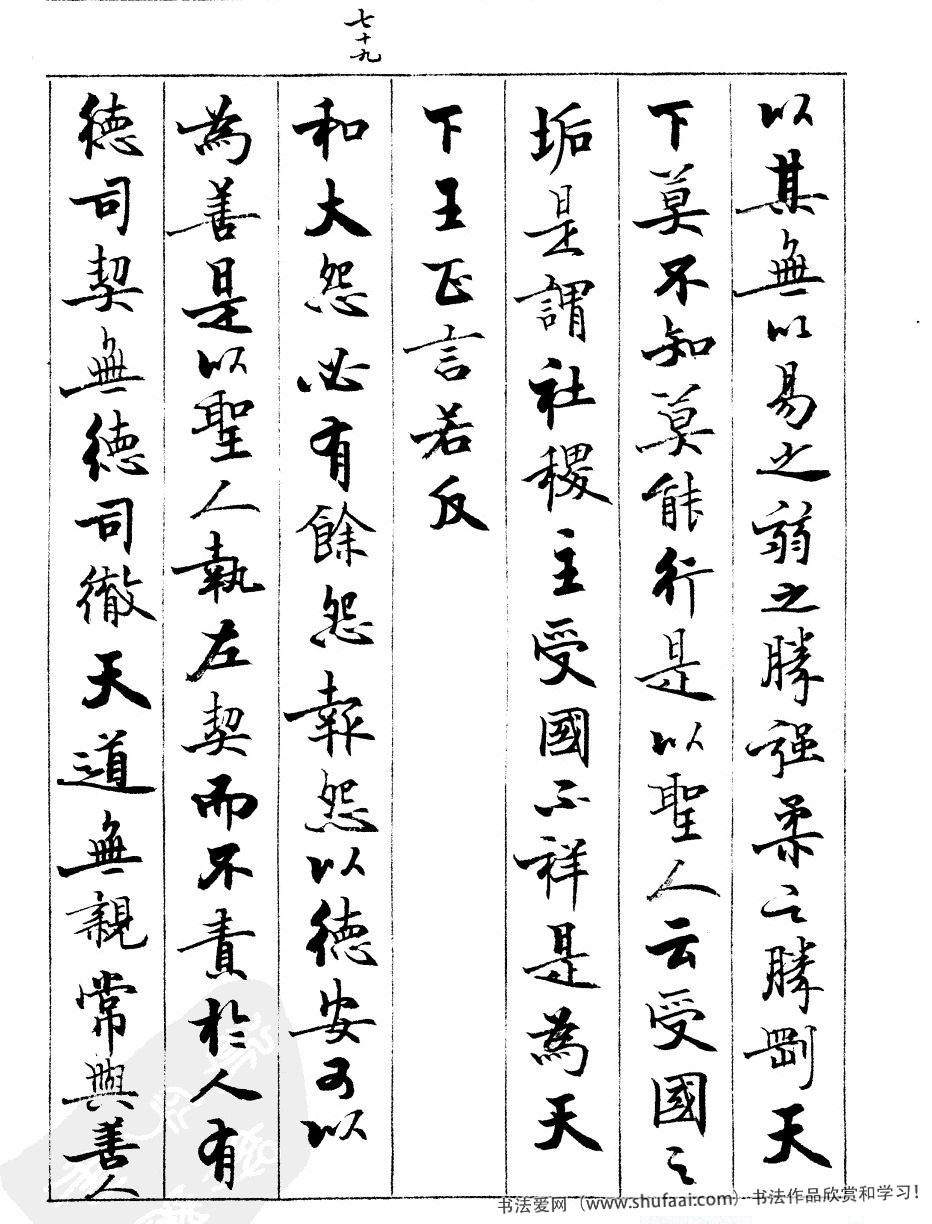 以其無以易之弱之勝强柔之勝剛天
下莫不知莫能行是以聖人云受國之
垢是謂社稷主受國不祥是為天
下王正言若反
七十九
和大怨必有餘怨報怨以德安可以
為善是以聖人執左契而不責於人有
德司契無德司徹天道無親常與善人
书法爱网（www.shufaai.com）书法作品欣赏和学习！